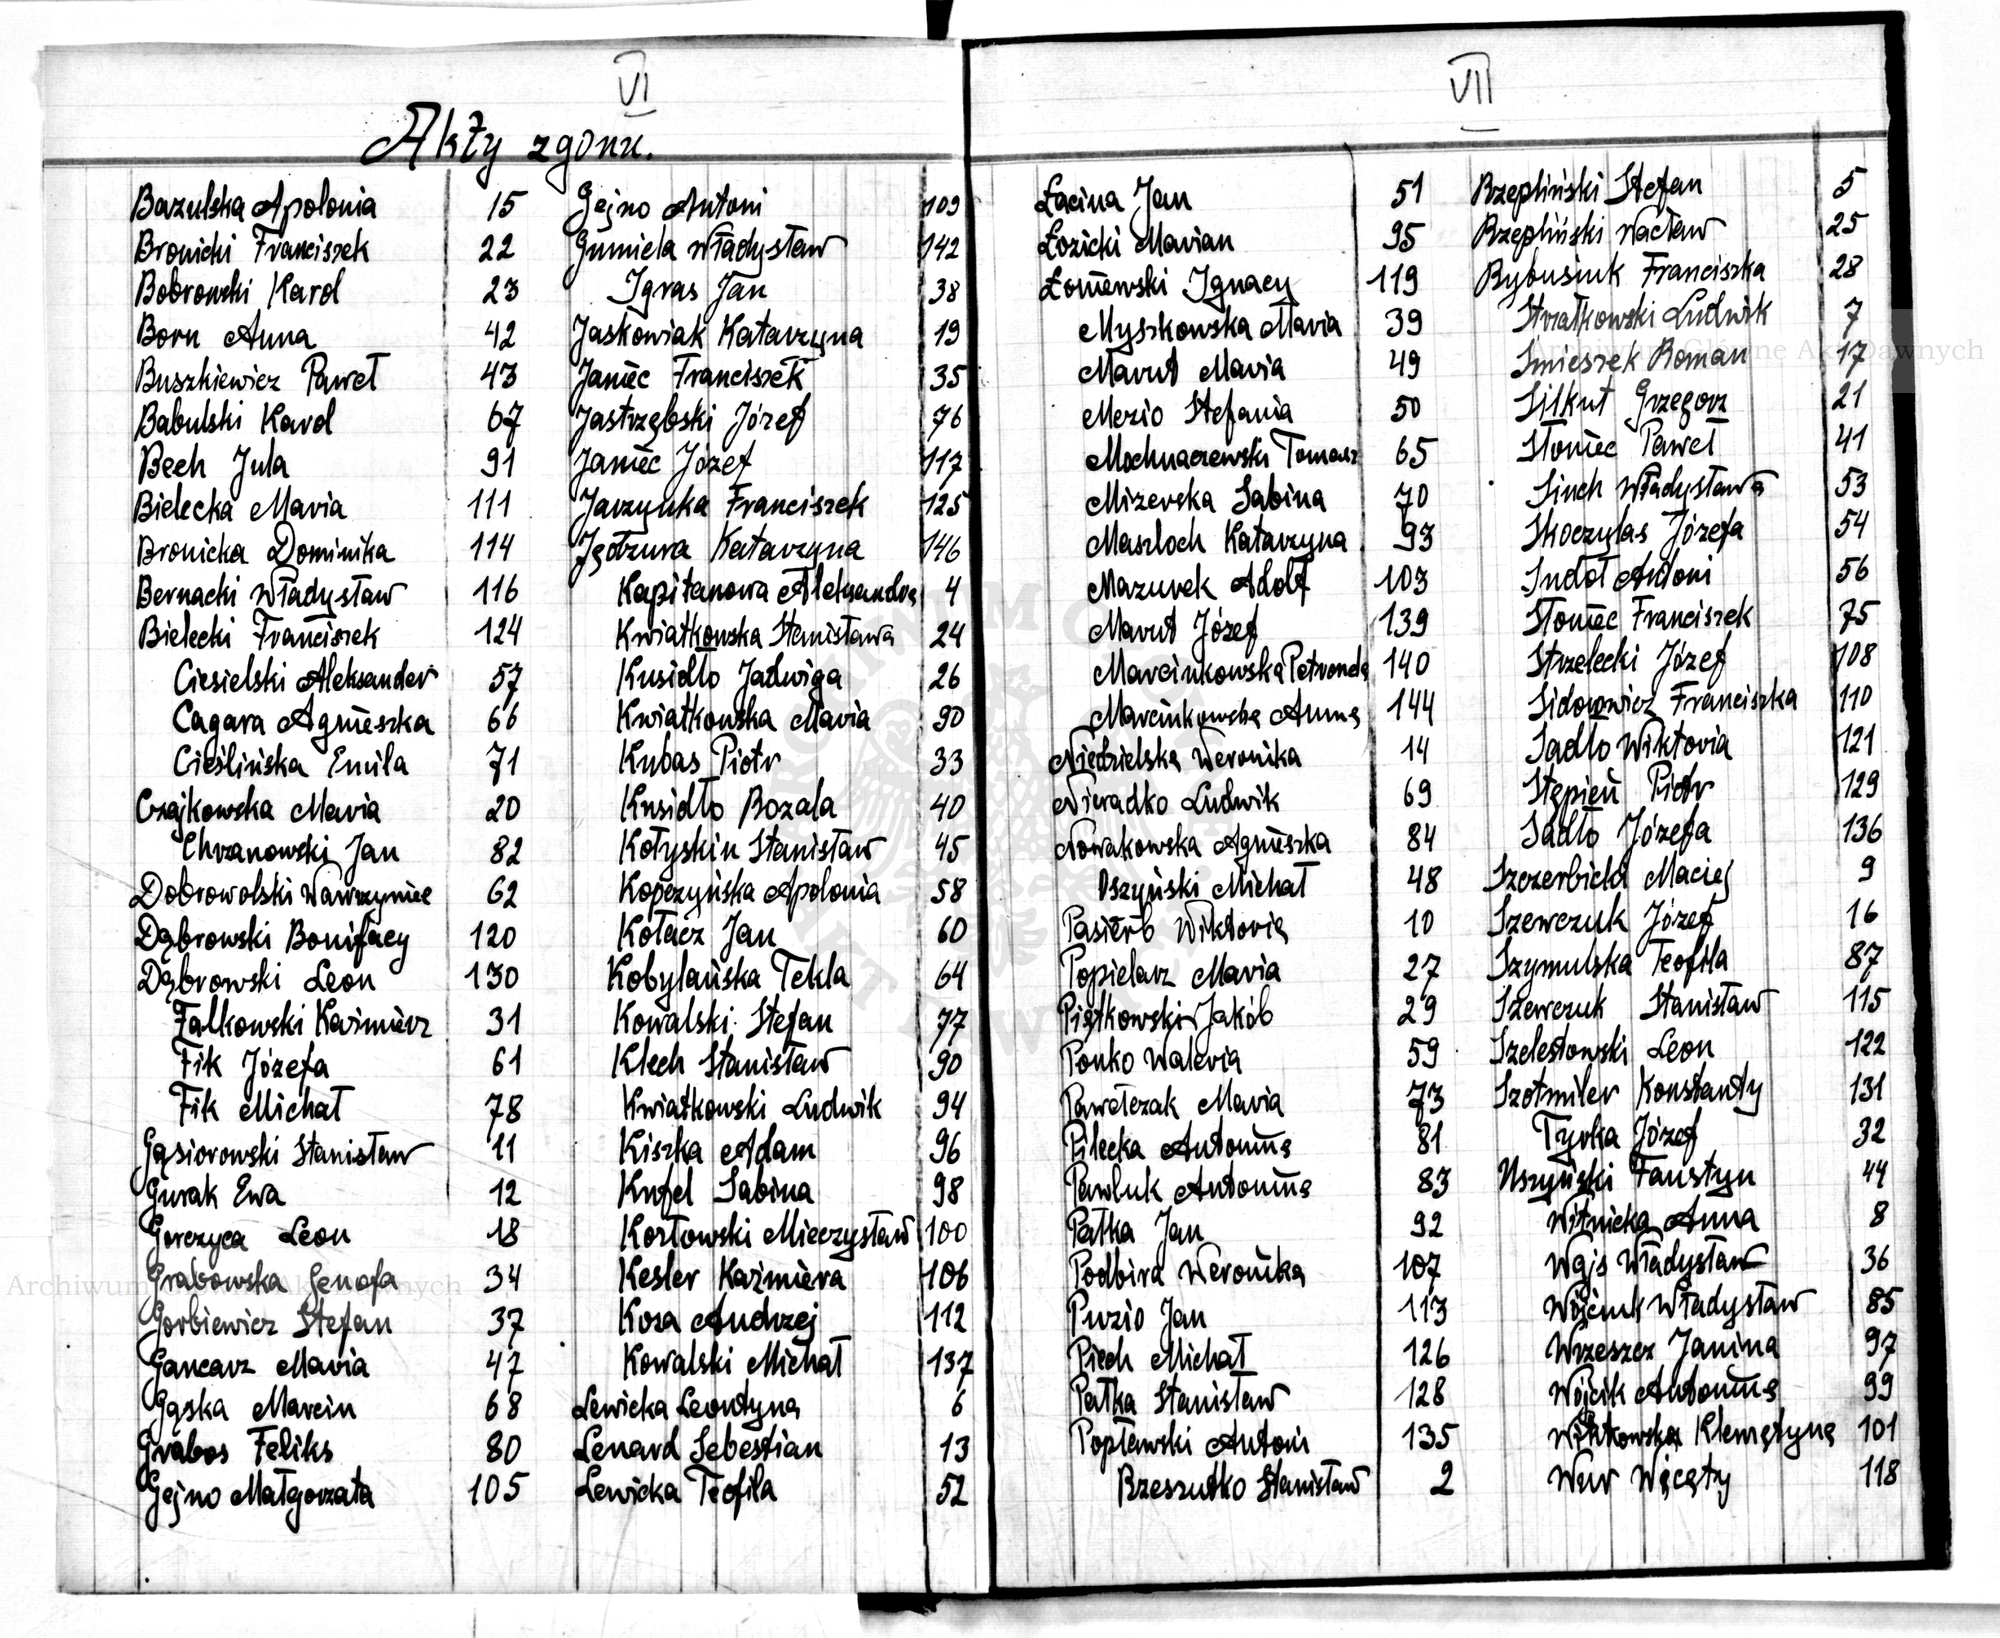 VI
Akty zgonu.
Bazulska Apolonia 15
Bronicki Franciszek 22
Bobrowski Karol 23
Born Anna 42
Buszkiewicz Paweł 43
Babulski Karol 67
Bech Jula 91
Bielecka Maria 111
Bronicka Dominika 114
Bernacki Władysław 116
Bielecki Franciszek 124
Ciesielski Aleksander 57
Cagara Agnieszka 66
Cieślińska Emila 71
Czajkowska Maria 20
Chrzanowski Jan 82
Dobrowolski Wawrzyniec 62
Dąbrowski Bonifacy 120
Dąbrowski Leon 130
Falkowski Kazimierz 31
Fik Józefa 61
Fik Michał 78
Gąsiorowski Stanisław 11
Gurak Ewa 12
Gorczyca Leon 18
Grabowska Genofa 34
Gorbiewicz Stefan 37
Gancarz Maria 47
Gąska Marcin 68
Grabos Feliks 80
Gejno Małgorzata 105
Gejno Antoni 109
Gumiela Władysław 142
Igras Jan 38
Jaskowiak Katarzyna 19
Janiec Franciszek 35
Jastrzębski Józef 76
Janiec Józef 117
Jarzynka Franciszek 125
Katarzyna 146
Kapitanowa Aleksandra 4
Kwiatkowska Stanisława 24
Kusidło Jadwiga 26
Kwiatkowska Maria 90
Kubas Piotr 33
Kusidło Rozala 40
Kołyskin Stanisław 45
Kopczyńska Apolonia 58
Kołacz Jan 60
Kobylańska Tekla 64
Kowalski Stefan 77
Klech Stanisław 90
Kwiatkowski Ludwik 94
Kiszka Adam 96
Knfel Sabina 98
Kozłowski Mieczysław 100
Kesler Kaźmiera 106
Koza Andrzej 112
Kowalski Michał 137
Lewicka Leontyna 6
Lenard Sebestian 13
Lewicka Teofila 52
VII
Łacina Jan 51
Łozicki Marian 95
Łoniewski Ignacy 119
Myszkowska Maria 39
Marut Maria 49
Mezio Stefania 50
Mochnaczewski Tomasz 65
Mizerska Sabina 70
Maszloch Katarzyna 93
Mazurek Adolf 103
Marut Józef 139
Marcinkowska Petronela 140
Marcinkowska Anna 144
Niedzielska Weronika 14
Nieradko Ludwik 69
Nowakowska Agnieszka 84
Oszyński Michał 48
Pasierb Wiktoria 10
Popielarz Maria 27
Piątkowski Jakób 29
Ponko Waleria 59
Pawełczak Maria 73
Pilecka Antonina 81
Pawluk Antonina 83
Pałka Jan 92
Podbira Weronika 107
Puzio Jan 113
Piech Michał 126
Pałka Stanisław 128
Popławski Antoni 135
Rzeszutko Stanisław 2
Rzepliński Stefan 5
Rzepliński Wacław 25
Rybusiuk Franciszka 28
Strzałkowski Ludwik 7
Śmieszek Roman 17
Siłkut Grzegorz 21
Słomiec Paweł 41
Siuch Władysława 53
Skoczylas Józefa 54
Sudoł Antoni 56
Słomiec Franciszek 75
Strzelecki Józef 108
Sidorowicz Franciszka 110
Sadło Wiktoria 121
Stępień Piotr 129
Sadło Józefa 136
Maciej 9
Szewczuk Józef 16
Szymulska Teofila 87
Szewczuk Stanisław 115
Szelestowski Leon 122
Szotmiler Konstanty 131
Tyrka Józef 32
Uszyński Faustyn 44
Witnicka Anna 8
Wajs Władysław 36
Wójciuk Władysław 85
Wrzeszcz Janina 97
Wójcik Antonina 99
Klemętyna 101
Wur Więcęty 118
Archiwum Główne Akt Dawnych
Archiwum Główne Akt Dawnych